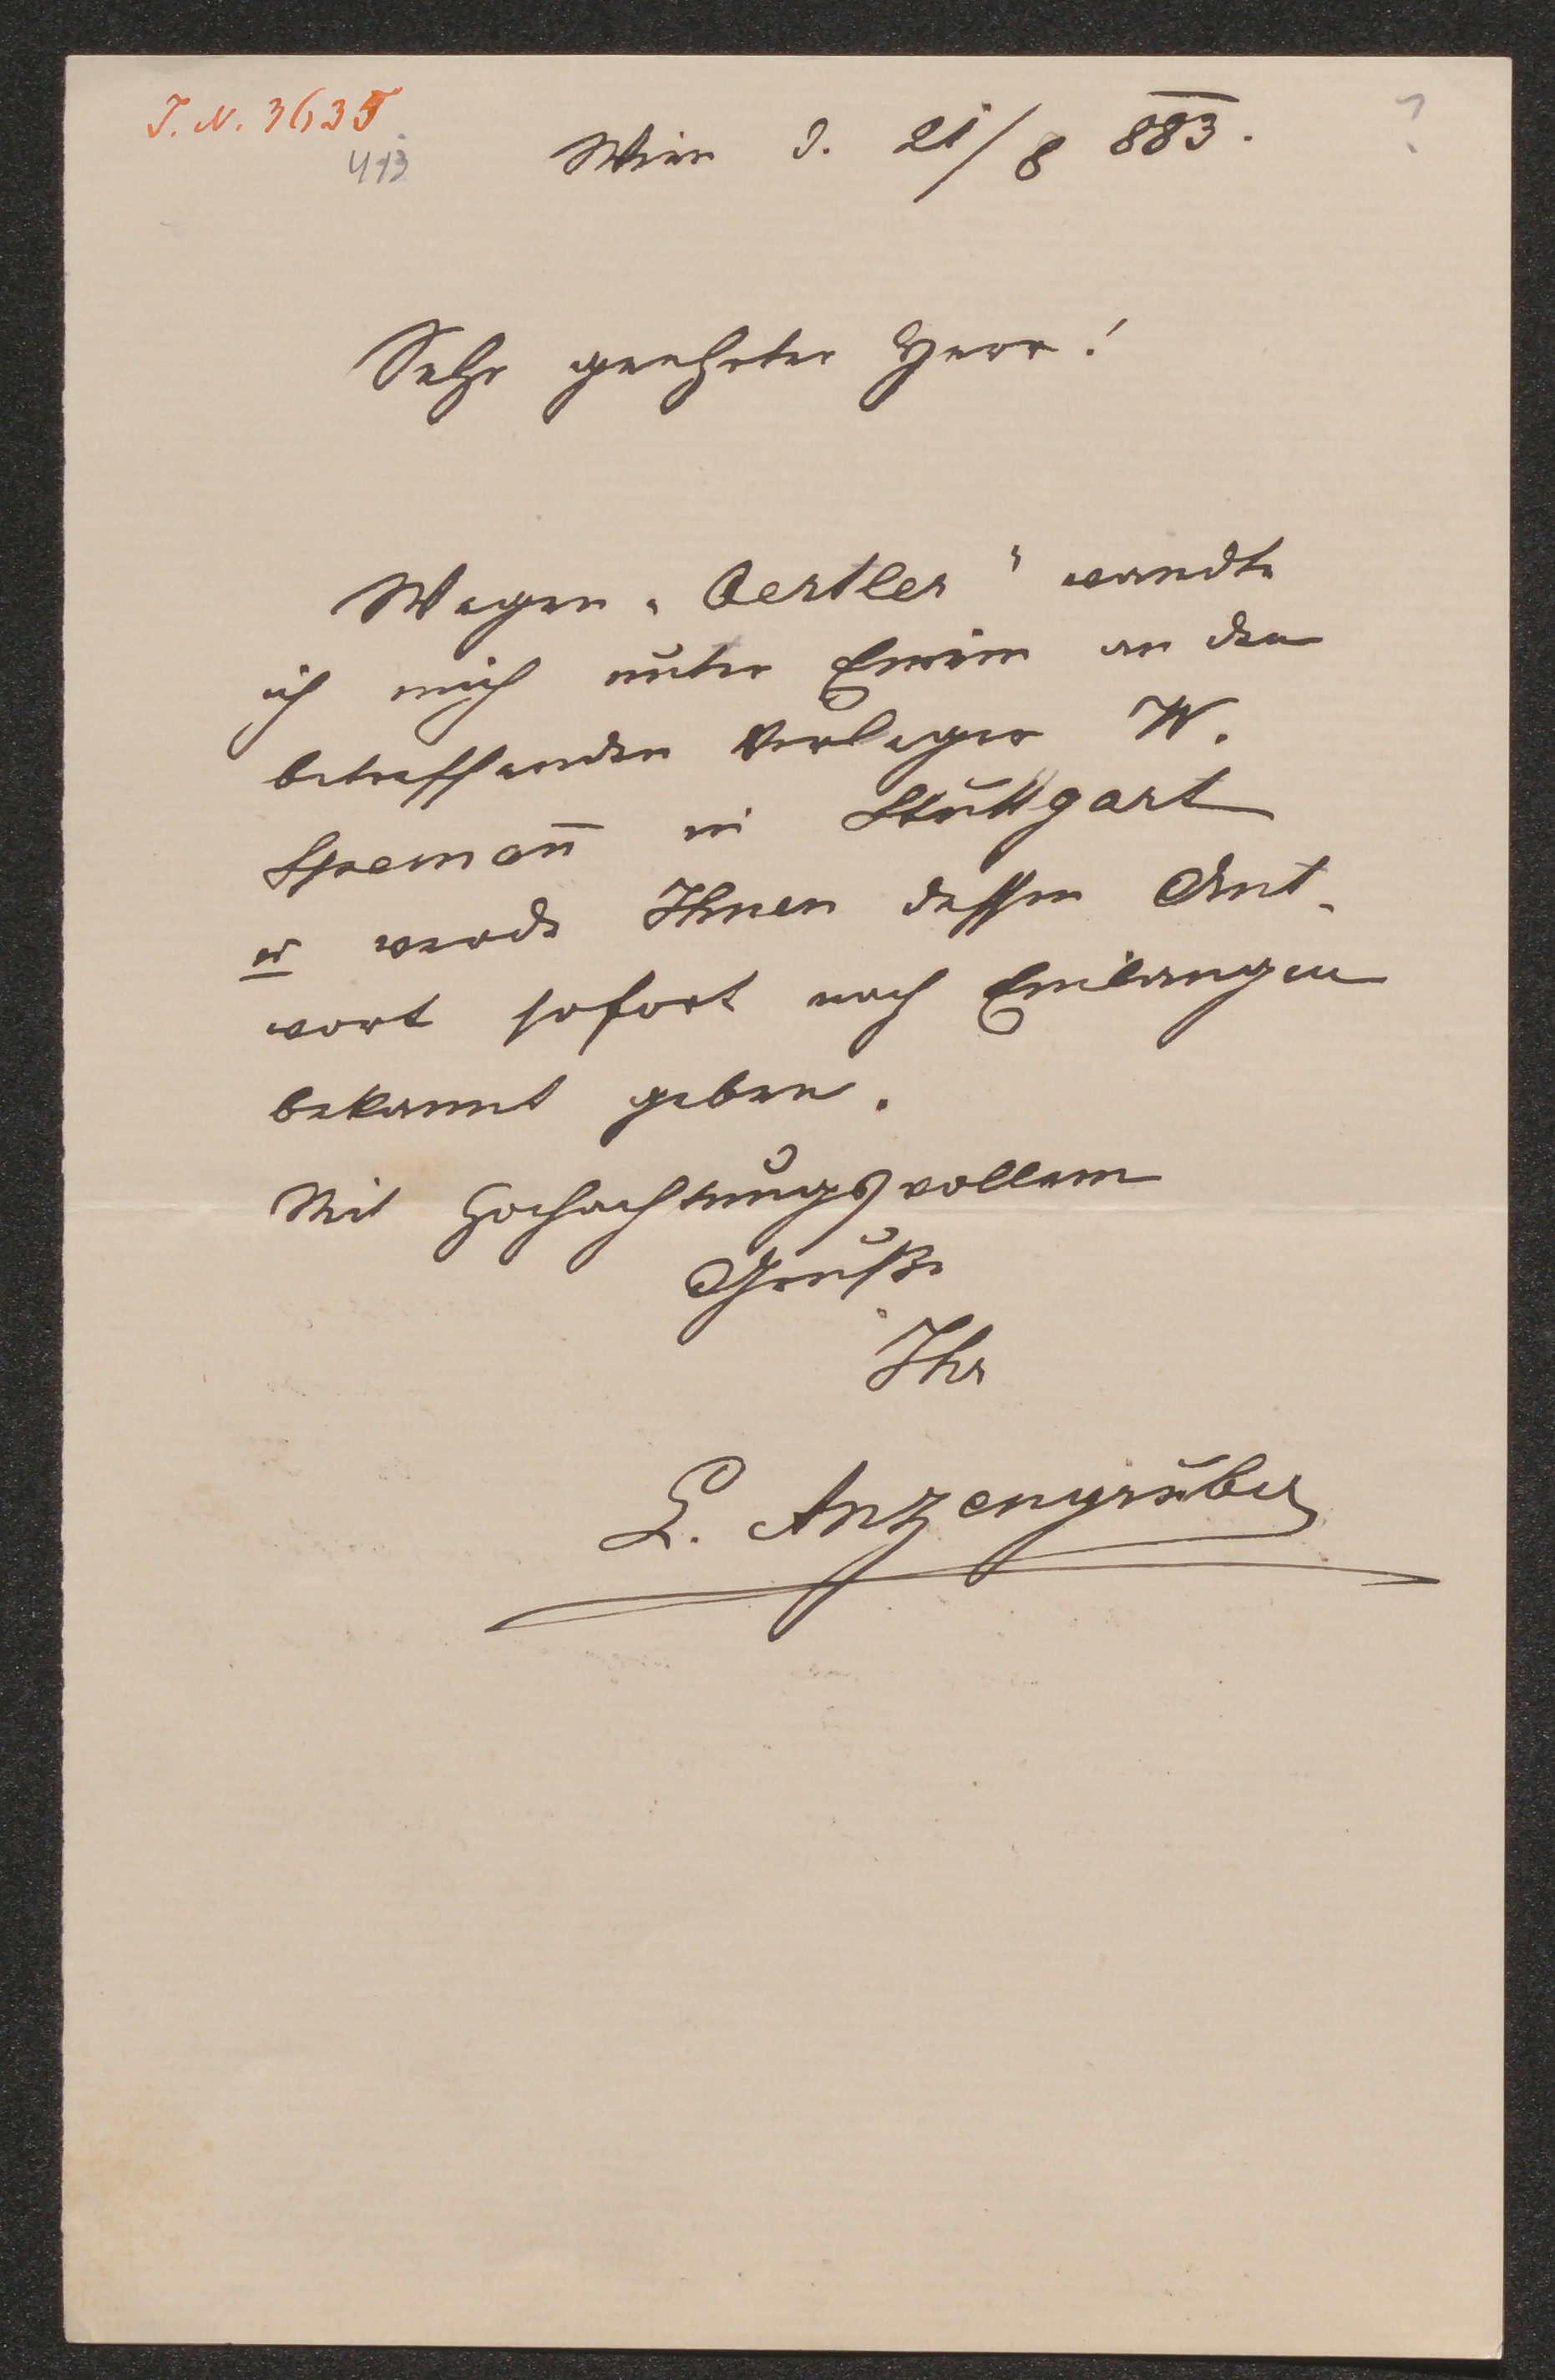 I. N. 3635
413
Wien d. 21/8 883.
?
Sehr geehrter Herr!
Wegen „Oertler“ wandte
ich mich unter Einem an den
betreffenden Verleger W.
Spemañ in Stuttgart
u werde Ihnen dessen Ant-
wort sofort nach Einlangen
bekannt geben.
Mit hochachtungsvollem
Gruße
Ihr
L. Anzengruber